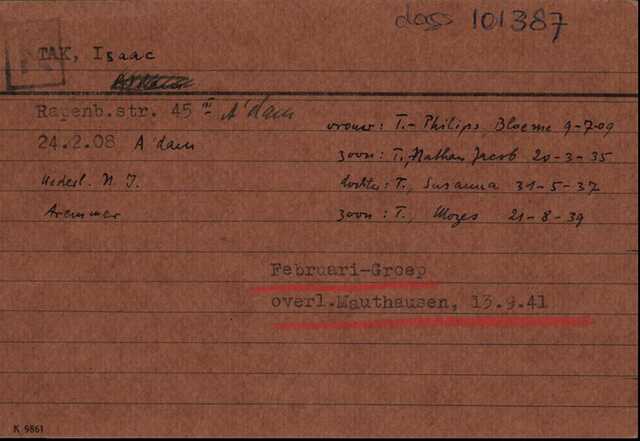 doss 101387
TAK, Isaac
Rapenb.str. 45 III A'dam
24.2.08 A'dam
Nederl. N.I.
vrouw: T.- Philips, Bloeme 9-7-09
zoon: T., Nathan Jacob 20-3-35
dochter: T., Susanna 31-5-37
zoon: T., Mozes 21-8-39
Februari-Groep
overl.Mauthausen, 13.9.41
K 9861